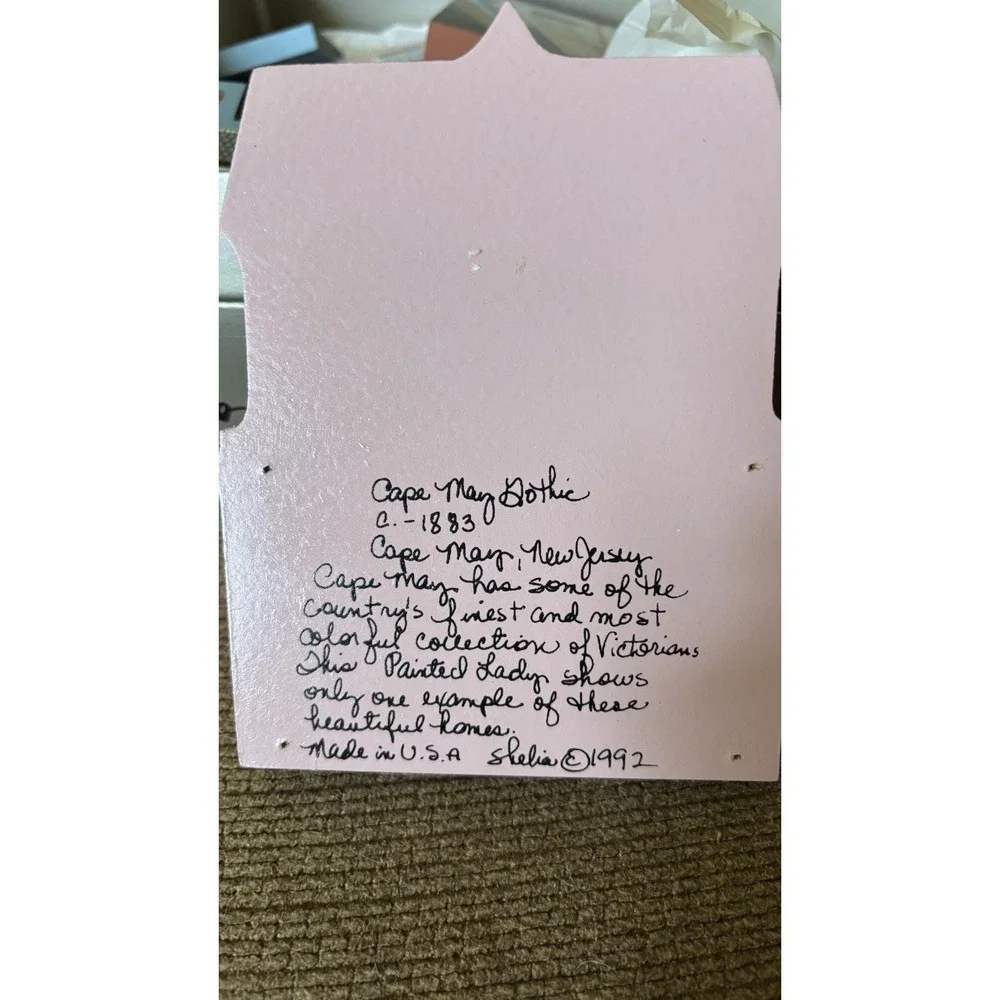 Cape May Gothic
C. - 1883
Cape May, New Jersey
Cape May has some of the
Country's finest and most
colorful collection of Victorians
This Painted Lady shows
only one example of these
beautiful homes.
Made in U.S.A Shelia ©1992